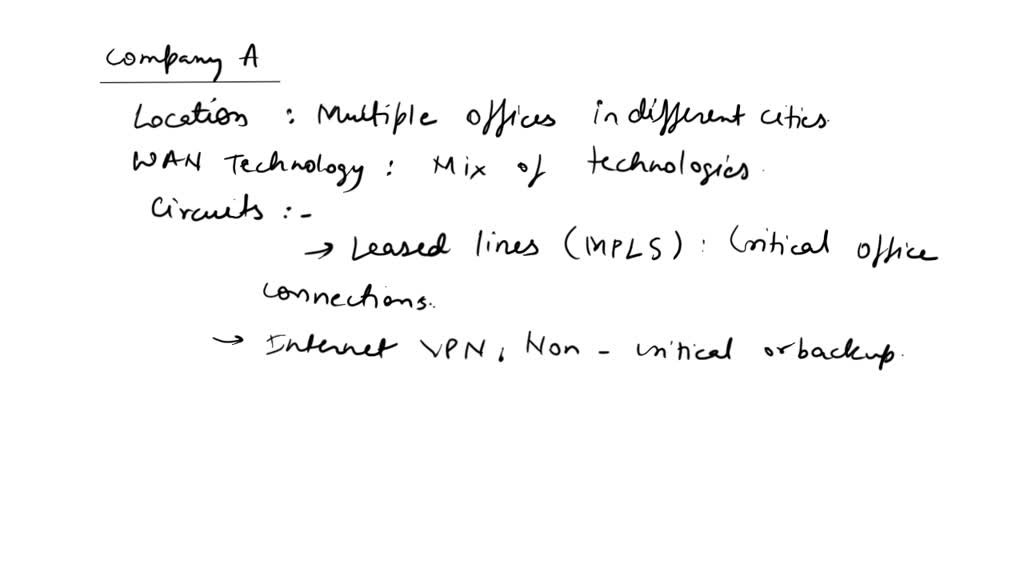 Company A
Location : Multiple offices in different cities.
WAN Technology : Mix of technologies.
Circuits :-
→ Leased lines (MPLS) : Critical office
connections.
→ Internet VPN, Non - critical or backup.